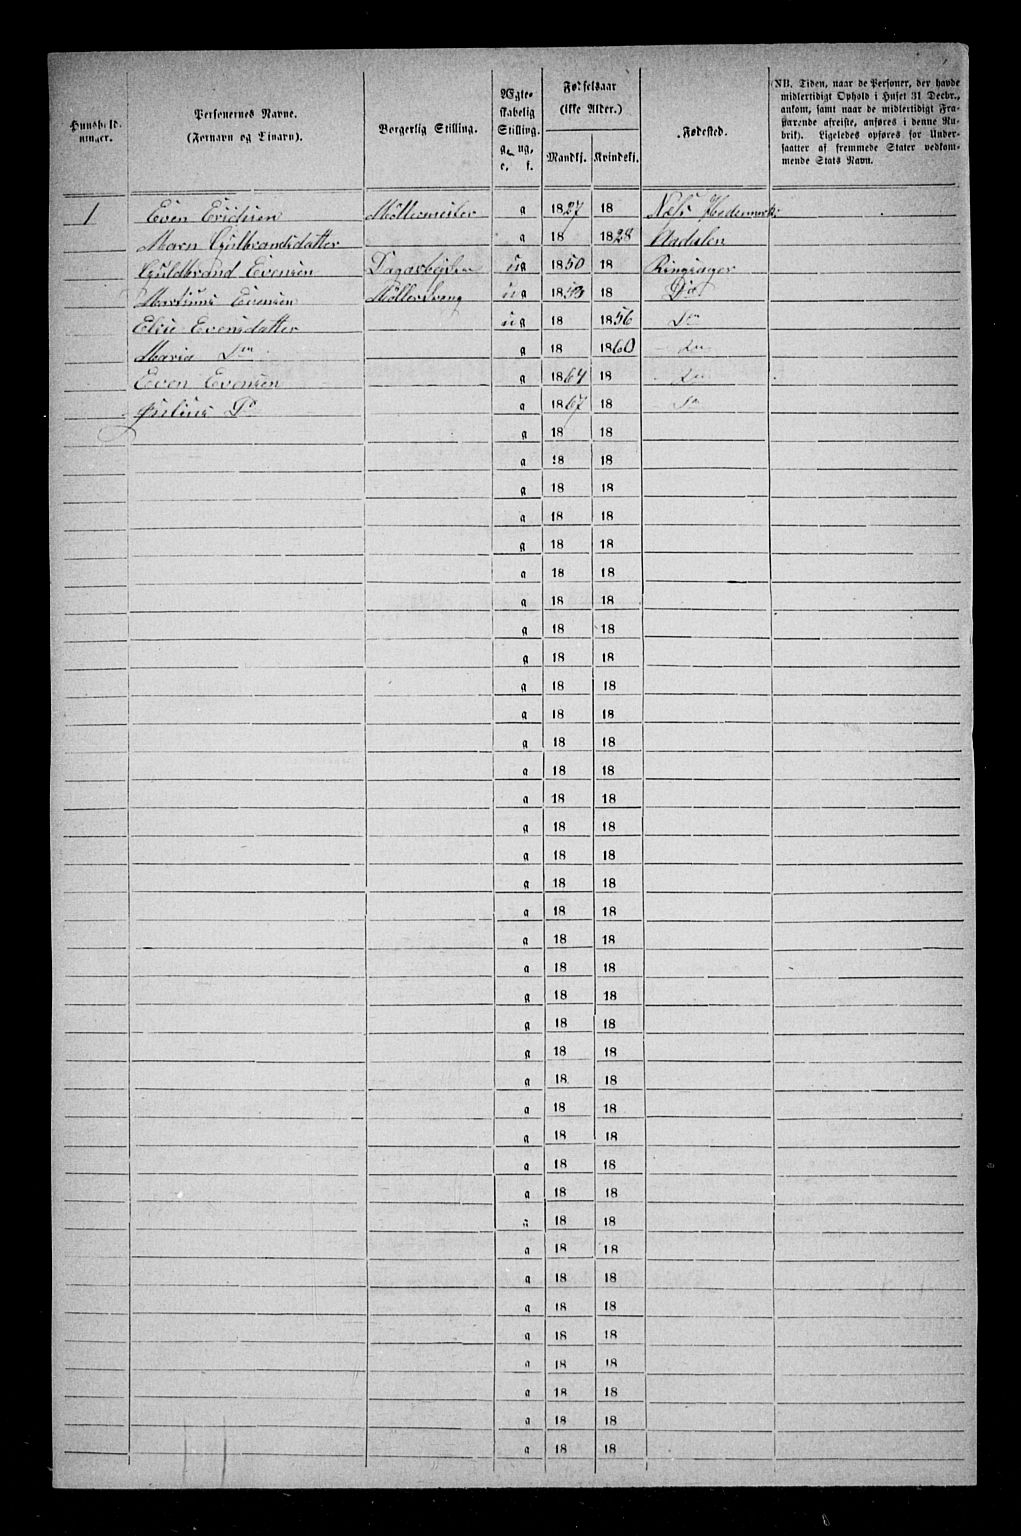 Hunshold-
ninger.
Personernes Navne.
(Fornavn og Tinavn).
Borgerlig Stilling.
Ægte-
skabelig
Stilling.
g. ug. e. f.
Fødselsaar
(ikke Alder.)
Mandkj. Kvindekj.
Fødested.
(NB. Tiden, naar de Personer, der havde
midlertidigt Ophold i Huset 31 Decbr.,
ankom, samt naar de midlertidigt Fra-
værende afreiste, anføres i denne Ru-
brik). Ligeledes opføres for Under-
saatter af fremmede Stater vedkom-
mende Stats Navn.
1 Even Erichsen Møllermester g 1827 18 Næss Hedemark
Maren Gulbrandsdatter g 18 1828 Aadalen
Guldbrand Evensen Dagarbejder ug 1850 18 Ringsager
Martinus Evensen Møllersvend ug 1853 18 Do
Elise Evensdatter ug 18 1856 Do
Maria Do g 18 1860 Do
Even Evensen g 1864 18 Do
Do g 1867 18 Do
g 18 18
g 18 18
g 18 18
g 18 18
g 18 18
g 18 18
g 18 18
g 18 18
g 18 18
g 18 18
g 18 18
g 18 18
g 18 18
g 18 18
g 18 18
g 18 18
g 18 18
g 18 18
g 18 18
g 18 18
g 18 18
g 18 18
g 18 18
g 18 18
g 18 18
g 18 18
g 18 18
g 18 18
g 18 18
g 18 18
g 18 18
g 18 18
g 18 18
g 18 18
g 18 18
g 18 18
g 18 18